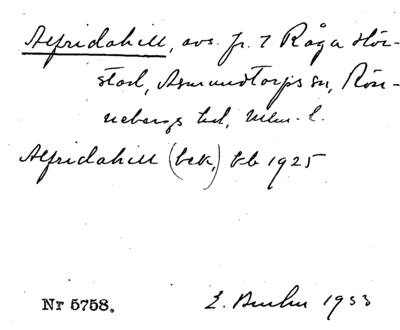 Alfridahill, avs. fr. 7 Råga Hör-
stad, Asmundtorps sn, Rön-
nebergs hd, Mlm. l.
Alfridahill (bek.) kb 1925
Nr 5758. E. 1933